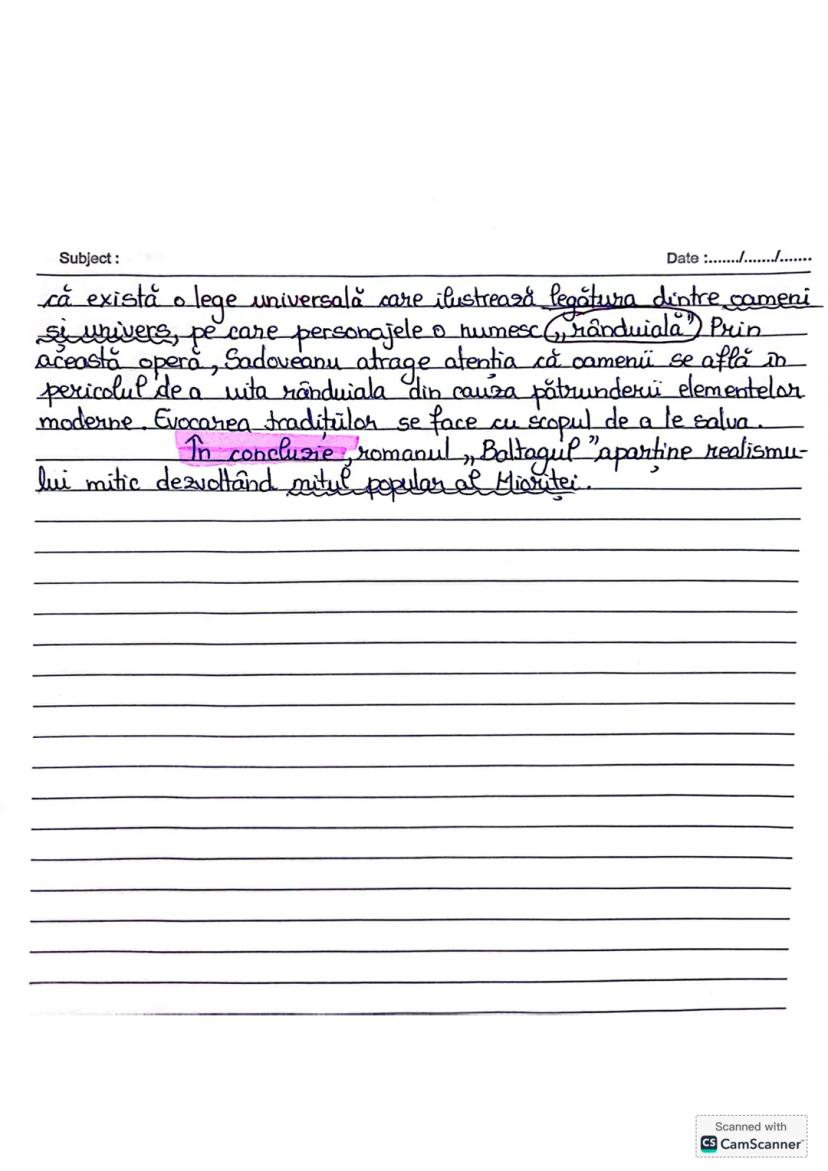 Subject :
Date :......./......./.......
că există o lege universală care ilustrează legătura dintre oameni
și univers, pe care personajele o numesc „rânduială” Prin
această operă, Sadoveanu atrage atenția că oamenii se află în
pericolul de a uita rânduiala din cauza pătrunderii elementelor
moderne. Evocarea tradițiilor se face cu scopul de a le salva.
În concluzie, romanul „Baltagul” aparține realismu-
lui mitic dezvoltând mitul popular al Mioriței.
Scanned with
CS CamScanner